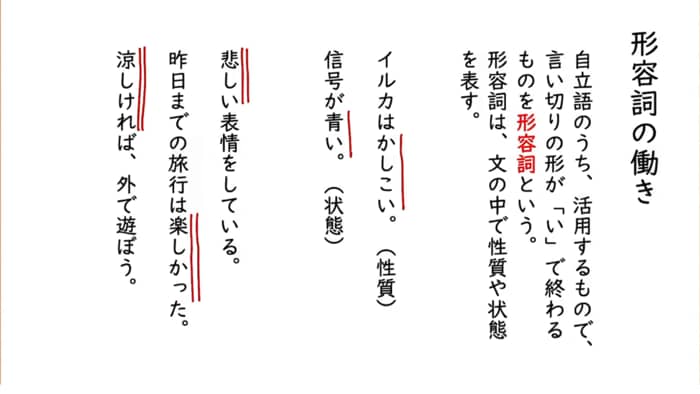 形容詞の働き
自立語のうち、活用するもので、
言い切りの形が「い」で終わる
ものを形容詞という。
形容詞は、文の中で性質や状態
を表す。
イルカはかしこい。（性質）
信号が青い。（状態）
悲しい表情をしている。
昨日までの旅行は楽しかった。
涼しければ、外で遊ぼう。